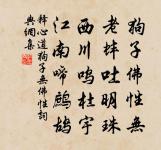 狗子佛性無
老蚌吐明珠
西川鳴杜宇
江南啼鷓鴣
釋心道狗子無佛性詞
與網集